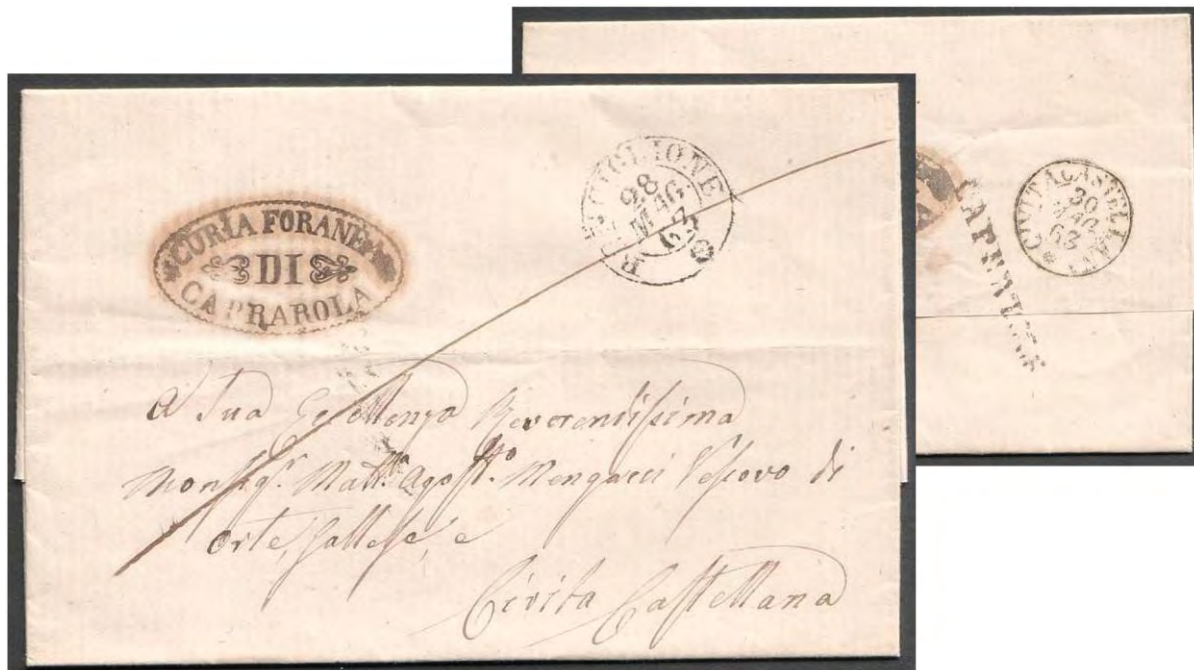 CURIA FORANEA
DI
CAPRAROLA
28
MAG
63
A Sua Eccellenza Reverendissima
Monsigr. Matt. Agostº. Mengacci Vescovo di
Orte, Gallese, e
Civita Castellana
CIVITACASTELLANA
30
MAG
63